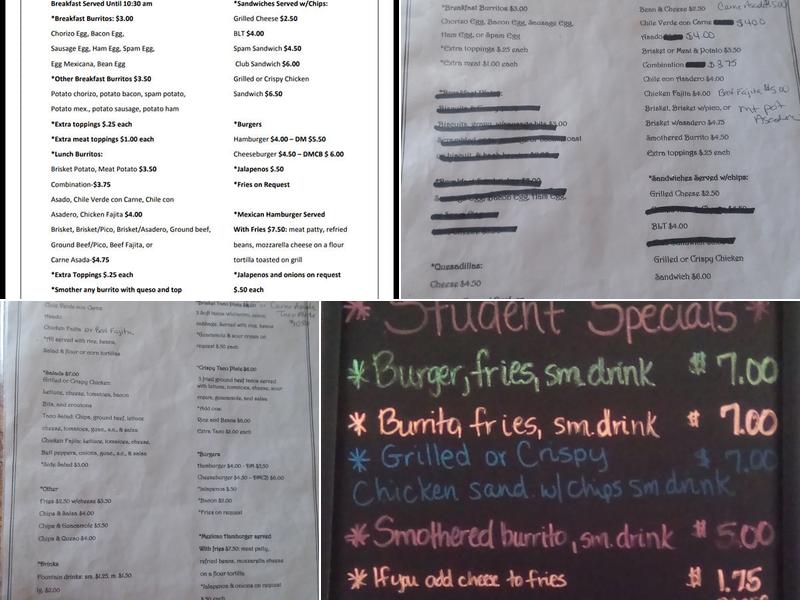 Breakfast Served Until 10:30 am
*Breakfast Burritos: $3.00
Chorizo Egg, Bacon Egg,
Sausage Egg, Ham Egg, Spam Egg,
Egg Mexicana, Bean Egg
*Other Breakfast Burritos $3.50
Potato chorizo, potato bacon, spam potato,
Potato mex., potato sausage, potato ham
*Extra toppings $.25 each
*Extra meat toppings $1.00 each
*Lunch Burritos:
Brisket Potato, Meat Potato $3.50
Combination-$3.75
Asado, Chile Verde con Carne, Chile con
Asadero, Chicken Fajita $4.00
Brisket, Brisket/Pico, Brisket/Asadero, Ground beef,
Ground Beef/Pico, Beef Fajita, or
Carne Asada-$4.75
*Extra Toppings $.25 each
*Smother any burrito with queso and top
*Sandwiches Served w/Chips:
Grilled Cheese $2.50
BLT $4.00
Spam Sandwich $4.50
Club Sandwich $6.00
Grilled or Crispy Chicken
Sandwich $6.50
*Burgers
Hamburger $4.00 – DM $5.50
Cheeseburger $4.50 – DMCB $ 6.00
*Jalapenos $.50
*Fries on Request
*Mexican Hamburger Served
With Fries $7.50: meat patty, refried
beans, mozzarella cheese on a flour
tortilla toasted on grill
*Jalapenos and onions on request
$.50 each
*Breakfast Burritos $3.00
Chorizo Egg, Bacon Egg, Sausage Egg,
Ham Egg, or Spam Egg
*Extra toppings $.25 each
*Extra meat $1.00 each
*Quesadillas:
Cheese $4.50
Bean & Cheese $2.50 Carne Asada $5.00
Chile Verde con Carne $4.00
Asado $4.00
Brisket or Meat & Potato $3.50
Combination $3.75
Chile con Asadero $4.00
Chicken Fajita $4.00 Beef Fajita $5.00
Brisket, Brisket w/pico, or
Brisket w/asadero $4.75
Smothered Burrito $4.50
Extra toppings $.25 each
*Sandwiches Served w/chips:
Grilled Cheese $2.50
BLT $4.00
Grilled or Crispy Chicken
Sandwich $6.00
Chile Verde con Carne
Asado
Chicken Fajita or Beef Fajita
*All served with rice, beans,
Salad & flour or corn tortillas
*Salads $7.00
Grilled or Crispy Chicken
lettuce, cheese, tomatoes, bacon
Bits, and croutons
Taco Salad: Chips, ground beef, lettuce
cheese, tomatoes, guac., s.c., & salsa
Chicken Fajita: lettuce, tomatoes, cheese,
Bell peppers, onions, guac., s.c., & salsa
*Side Salad $3.00
*Other
Fries $2.50 w/cheese $3.50
Chips & Salsa $4.00
Chips & Guacamole $5.50
Chips & Queso $4.00
*Drinks
Fountain drinks: sm. $1.25, m. $1.50
lg. $2.00
Brisket Taco Plate or Carne Asada
Taco Plate
cabbage. Served with rice, beans
*Guacamole & sour cream on
request $.50 each
*Crispy Taco Plate $6.00
3 fried ground beef tacos served
with lettuce, tomatoes, cheese, sour
cream, guacamole, and salsa
*Add on:
Rice and Beans $2.00
Extra Taco $2.00 each
*Burgers
Hamburger $4.00 - DM $5.50
Cheeseburger $4.50 – DM(C)B $6.00
*Jalapenos $.50
*Bacon $1.00
*Fries on request
*Mexican Hamburger served
With fries $7.50: meat patty,
refried beans, mozzarella cheese
on a flour tortilla
*Jalapenos & onions on request
$.50 each
* Student Specials *
* Burger, fries, sm. drink $ 7.00
* Burrito, fries, sm. drink $ 7.00
* Grilled or Crispy $ 7.00
Chicken sand. w/ chips sm drink
* Smothered burrito, sm. drink $ 5.00
* If you add cheese to fries $ 1.75